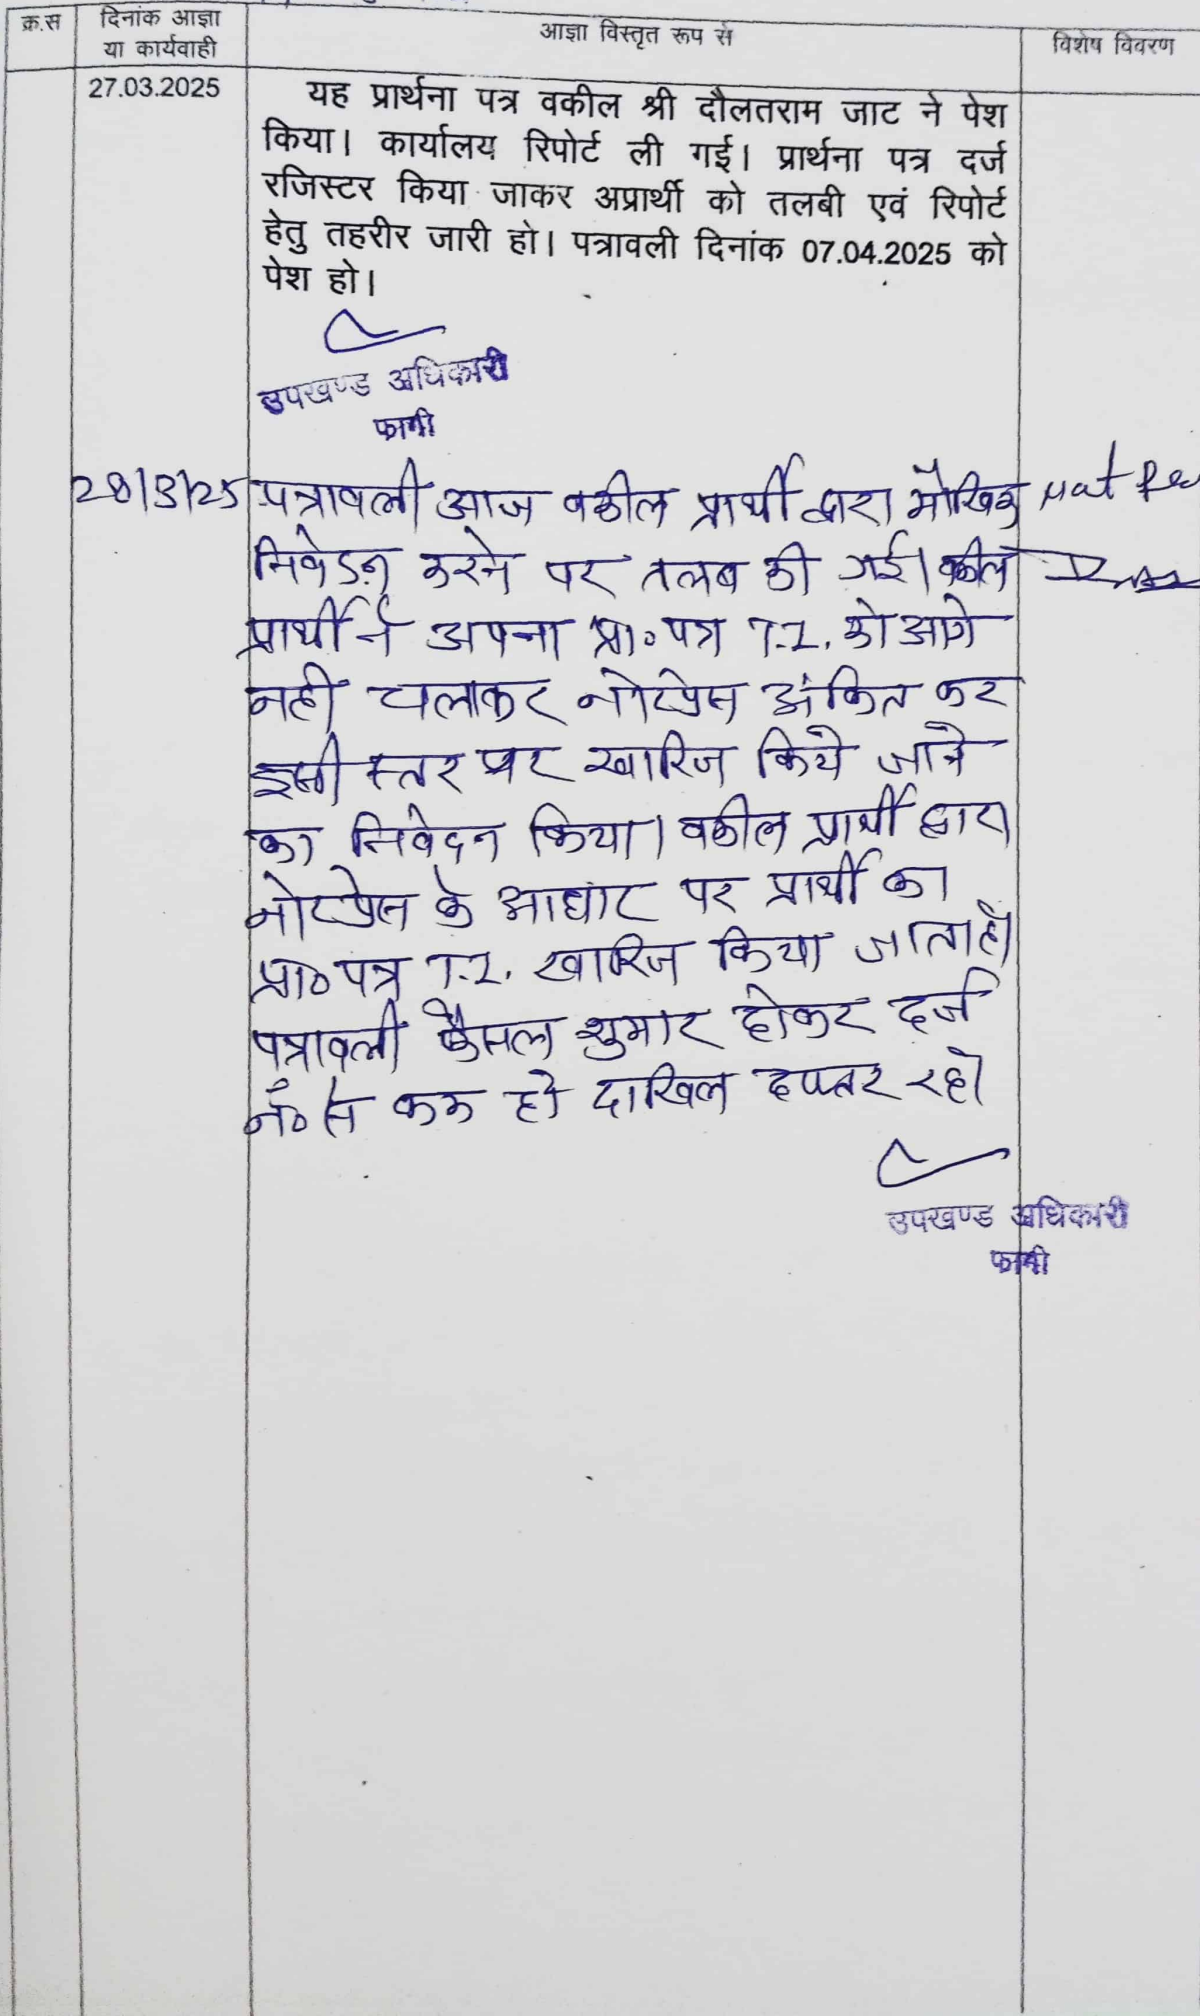 क्र.स
दिनांक आज्ञा
या कार्यवाही
आज्ञा विस्तृत रूप से
विशेष विवरण
27.03.2025
यह प्रार्थना पत्र वकील श्री दौलतराम जाट ने पेश
किया। कार्यालय रिपोर्ट ली गई। प्रार्थना पत्र दर्ज
रजिस्टर किया जाकर अप्रार्थी को तलबी एवं रिपोर्ट
हेतु तहरीर जारी हो। पत्रावली दिनांक 07.04.2025 को
पेश हो।
उपखण्ड अधिकारी
फागी
28/3/25 पत्रावली आज वकील प्रार्थी द्वारा मौखिक
निवेदन करने पर तलब की गई। वकील
प्रार्थी ने अपना प्रा० पत्र T.I. को आगे
नही चलाकर नोटप्रेस अंकित कर
इसी स्तर पर खारिज किये जाने
का निवेदन किया। वकील प्रार्थी द्वारा
नोटप्रेस के आधार पर प्रार्थी का
प्रा० पत्र T.I. खारिज किया जाता है।
पत्रावली फैसल शुमार होकर दर्ज
नं० से कम हो दाखिल दफ्तर रहे।
उपखण्ड अधिकारी
फागी